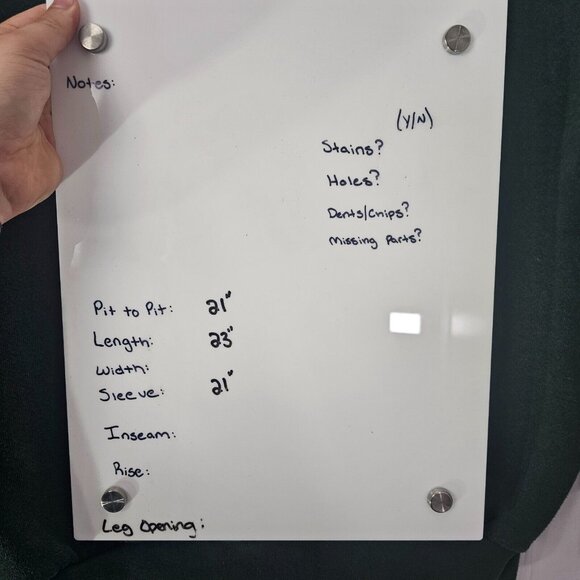 Notes:
(Y/N)
Stains?
Holes?
Dents/Chips?
Missing Parts?
Pit to Pit: 21"
Length: 23"
Width:
Sleeve: 21"
Inseam:
Rise:
Leg Opening: